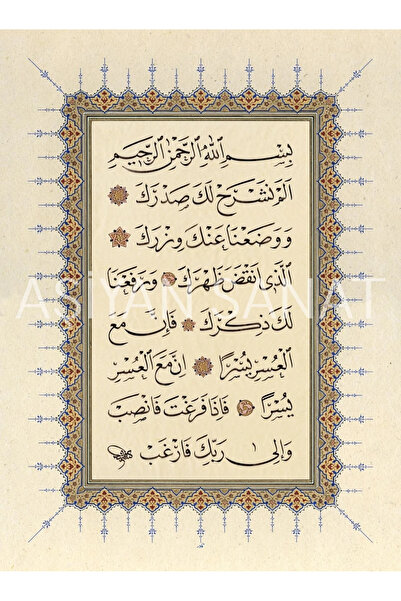 بِسْمِ اللّٰهِ الرَّحْمٰنِ الرَّحِيمِ
اَلَمْ نَشْرَحْ لَكَ صَدْرَكَ
وَوَضَعْنَا عَنْكَ وِزْرَكَ
اَلَّذِى اَنْقَضَ ظَهْرَكَ وَرَفَعْنَا
ASİYAN SANAT
لَكَ ذِكْرَكَ فَاِنَّ مَعَ
الْعُسْرِ يُسْرًا اِنَّ مَعَ الْعُسْرِ
يُسْرًا فَاِذَا فَرَغْتَ فَانْصَبْ
وَاِلٰى رَبِّكَ فَارْغَبْ